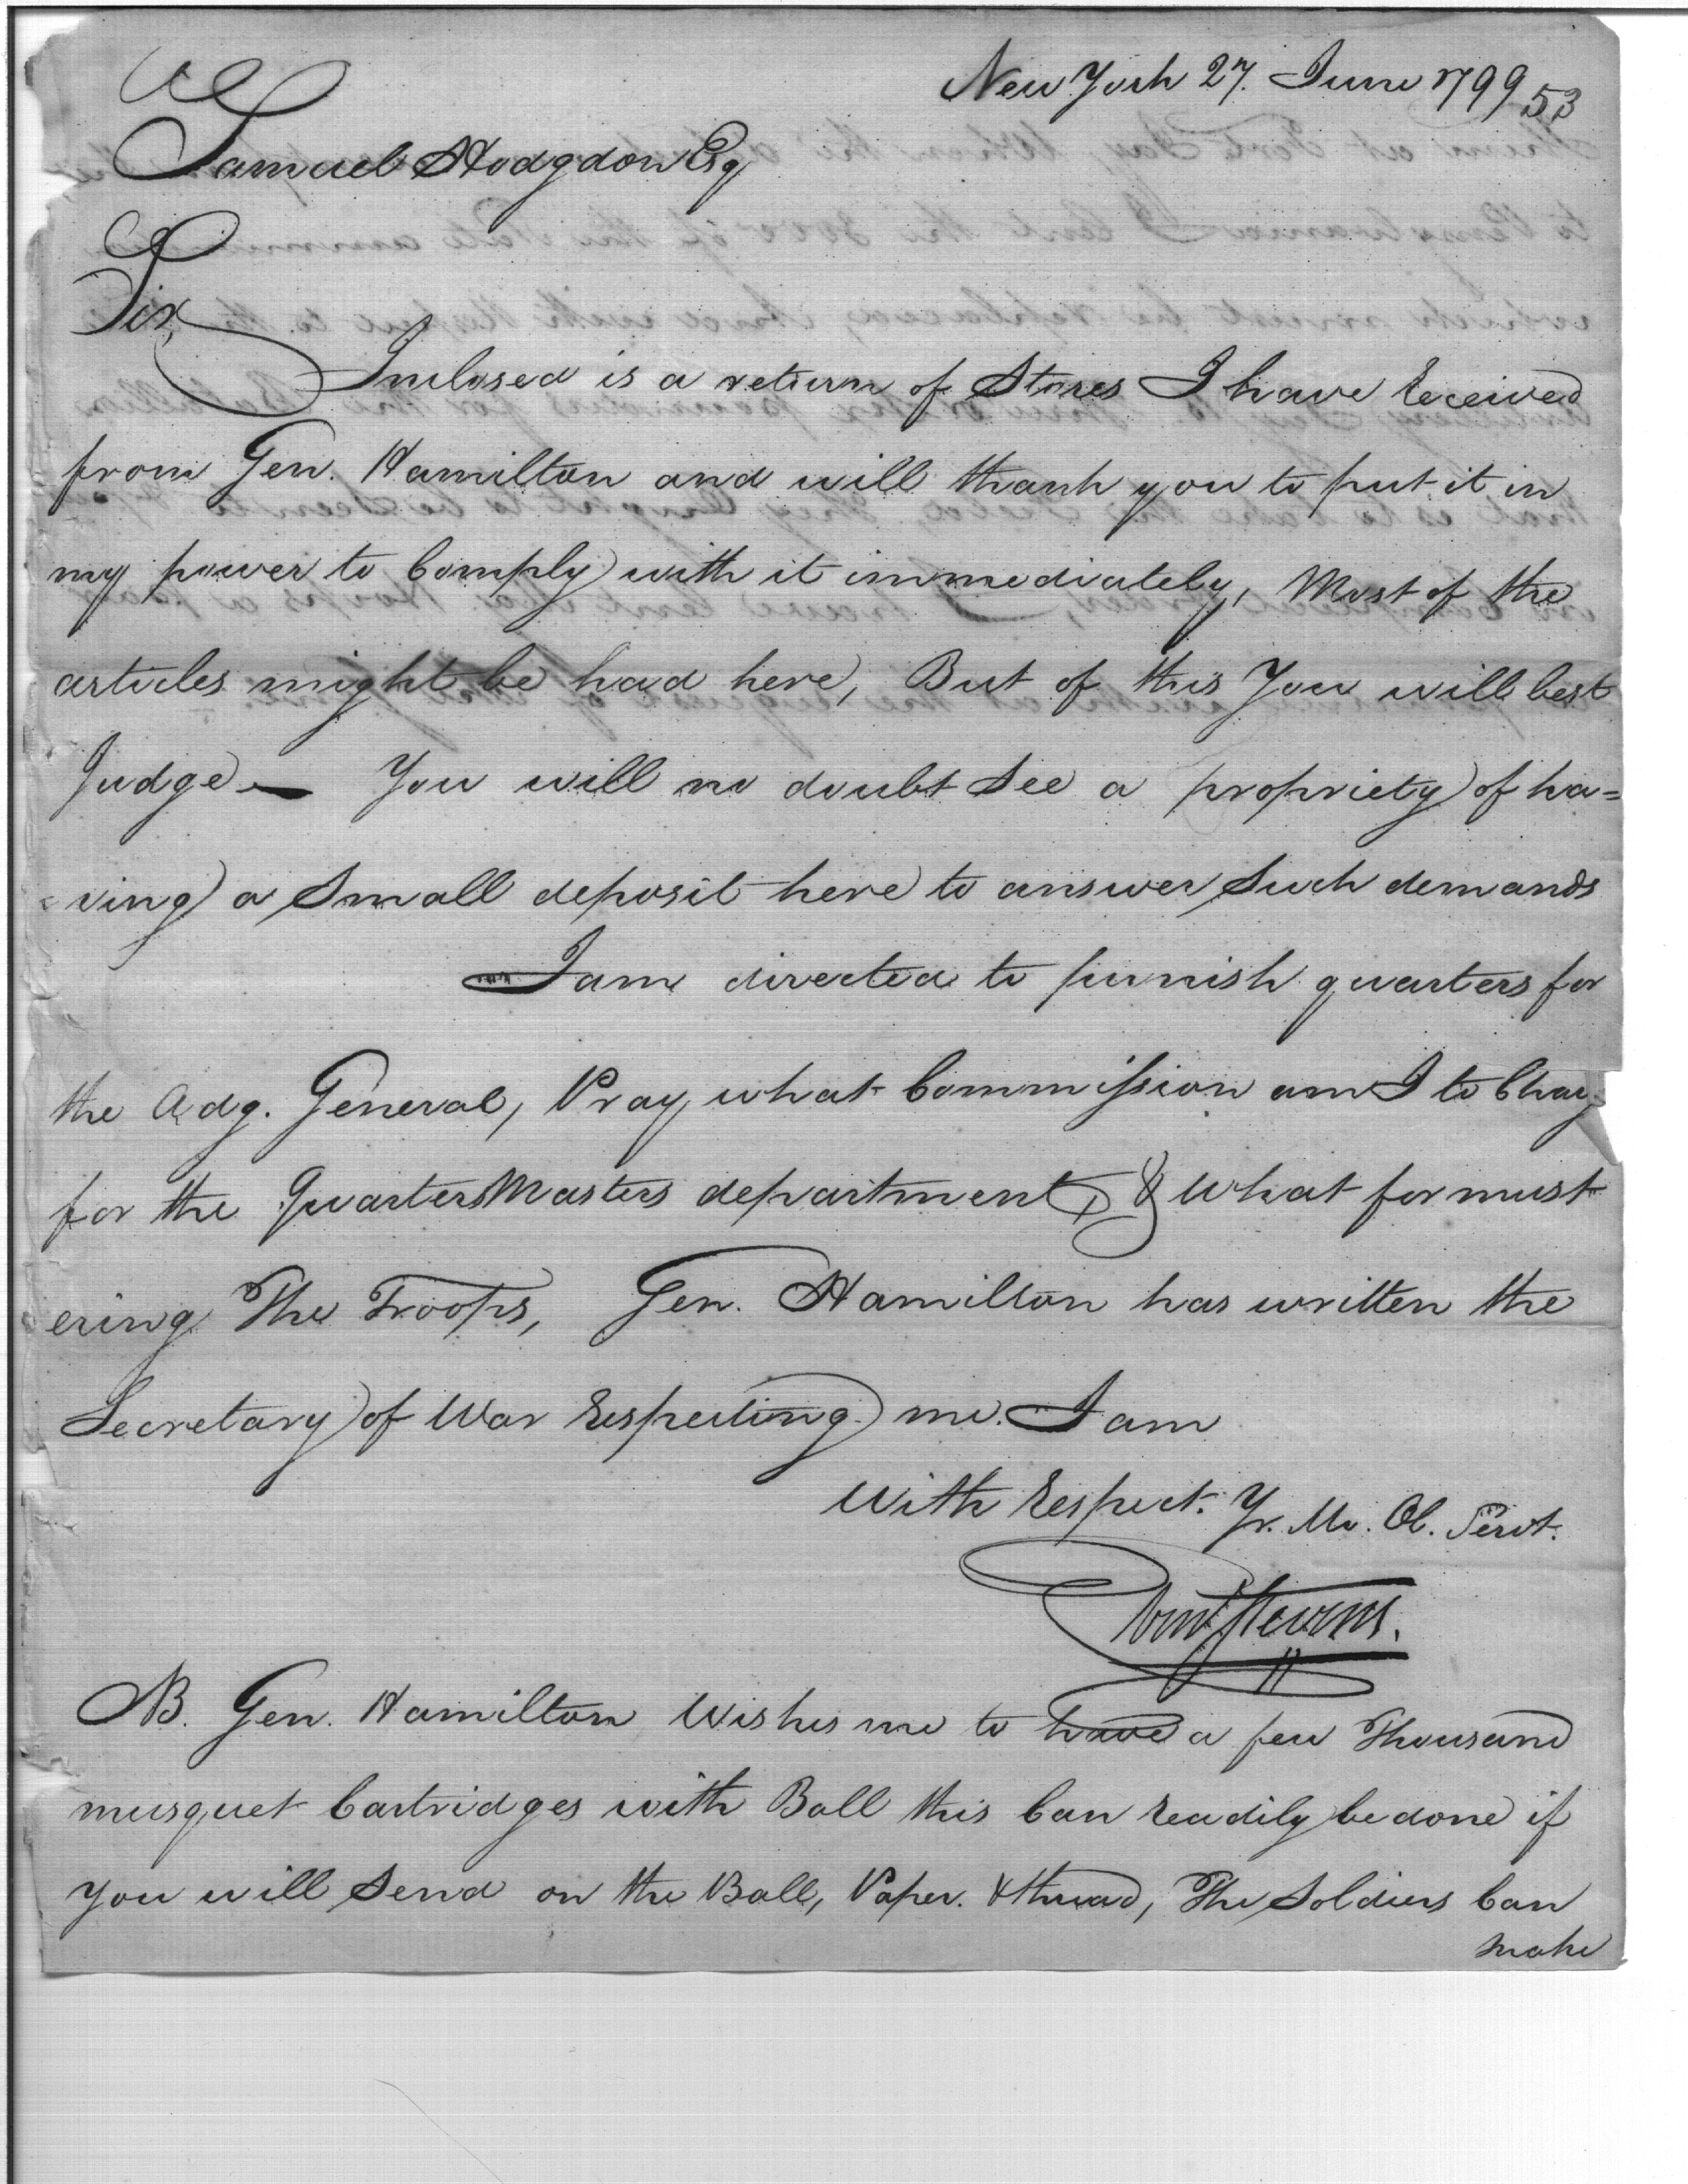 New York 27. June 1799
53
Samuel Hodgdon Esq
Sir,
Inclosed is a return of Stores I have received
from Gen. Hamilton and will thank you to put it in
my power to Comply with it immediately, Most of the
articles might be had here, But of this You will best
Judge— You will no doubt See a propriety of ha=
ving a Small deposit here to answer Such demands
I am directed to furnish quarters for
the Adg. General, Pray what Commission am I to Charg
for the QuartersMasters department, & What for must
ering The Troops, Gen. Hamilton has written the
Secretary of War respecting me. I am
With respect. Yr. Mo. Ob. Servt.
Eben Stevens.
NB. Gen. Hamilton Wishes me to have a few Thousand
musquet Cartridges with Ball this Can readily be done if
you will Send on the Ball, Paper. & thread, The Soldiers Can
make